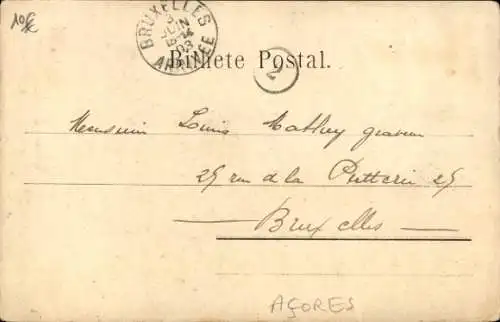 10fc
BRUXELLES
3
JUIN
15-16
03
ARRIVÉE
Bilhete Postal.
2
Monsieur Louis Mathey graveur
25 rue de la Putterie 25
— Bruxelles —
AÇORES